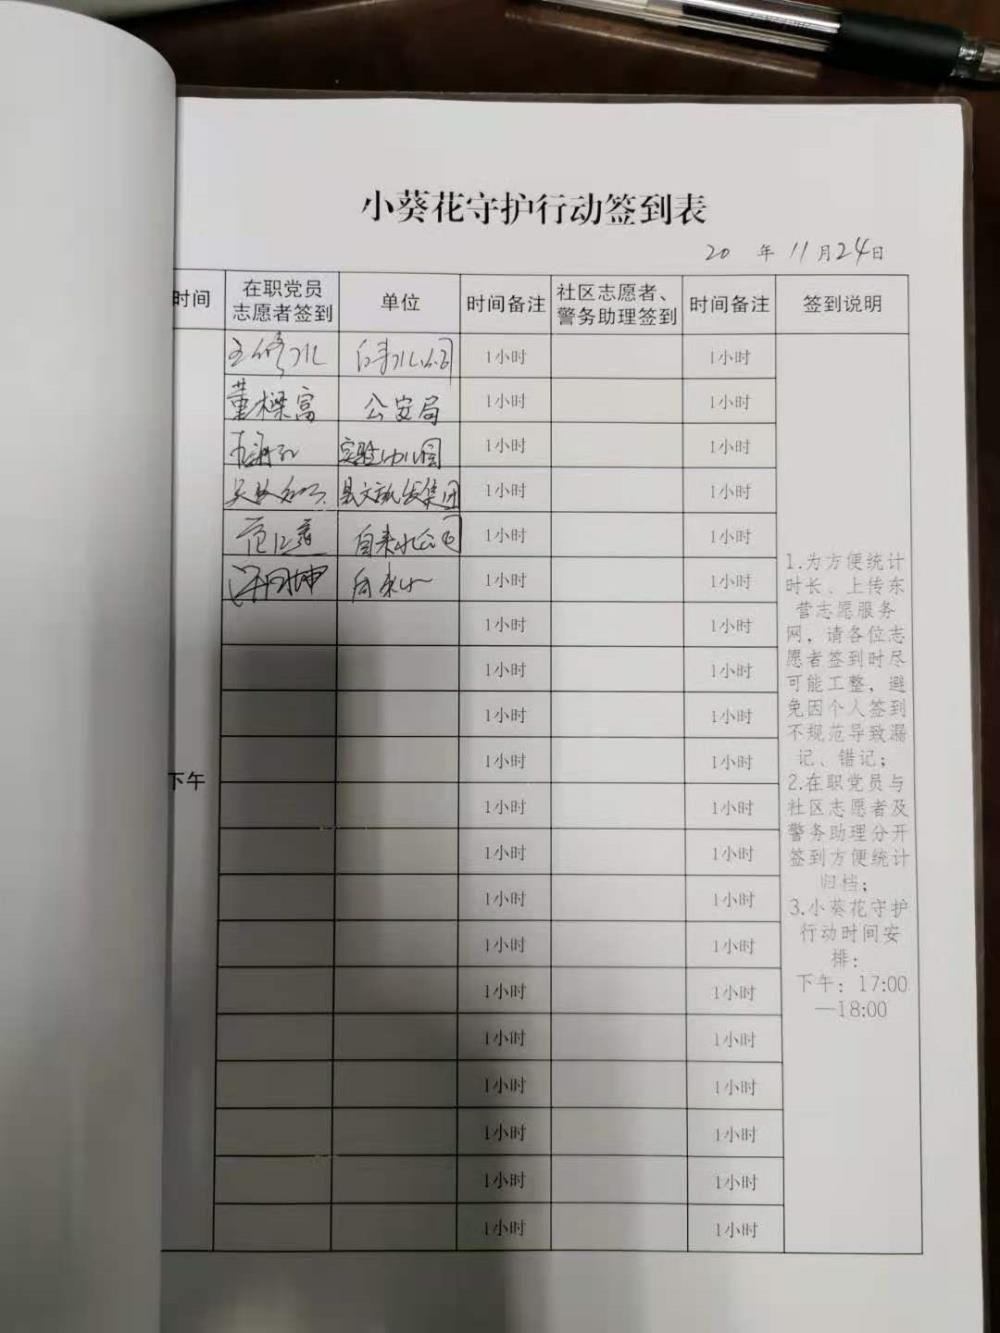 小葵花守护行动签到表
20 年 11月24日
时间 在职党员志愿者签到 单位 时间备注 社区志愿者、警务助理签到 时间备注 签到说明
1小时 1小时
董樑富 公安局 1小时 1小时
实验幼儿园 1小时 1小时
县文旅发集团 1小时 1小时
自来水公司 1小时 1小时
自来水 1小时 1小时
1小时 1小时
1小时 1小时
1小时 1小时
1小时 1小时
下午
1小时 1小时
1小时 1小时
1小时 1小时
1小时 1小时
1小时 1小时
1小时 1小时
1小时 1小时
1小时 1小时
1小时 1小时
1小时 1小时
1.为方便统计
时长、上传东
营志愿服务
网，请各位志
愿者签到时尽
可能工整，避
免因个人签到
不规范导致漏
记、错记；
2.在职党员与
社区志愿者及
警务助理分开
签到方便统计
归档；
3.小葵花守护
行动时间安
排：
下午：17:00
—18:00